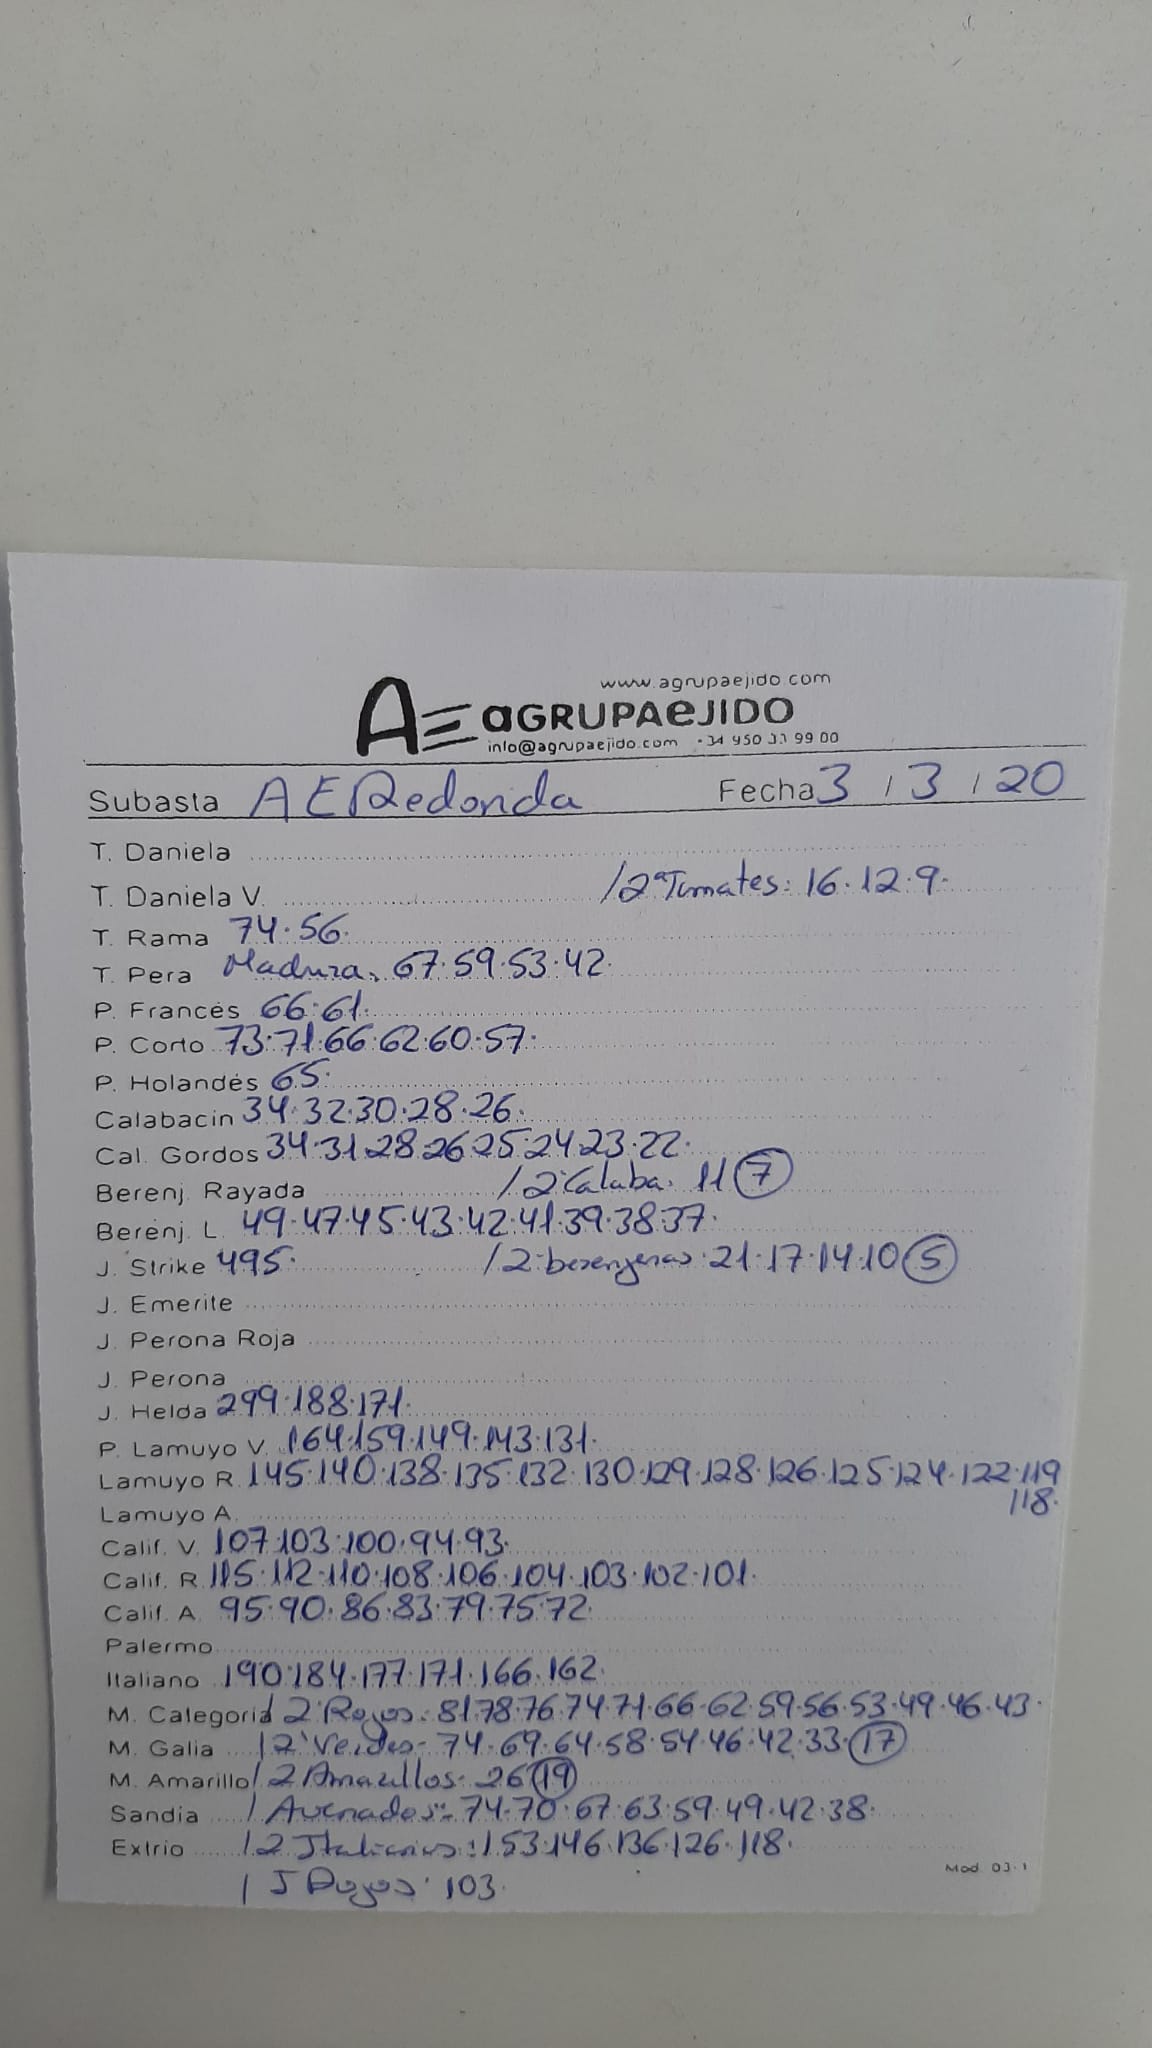 www.agrupaejido.com
AE aGRUPAeJIDO
info@agrupaejido.com +34 950 33 99 00
Subasta AERedonda Fecha 3 / 3 / 20
T. Daniela
T. Daniela V. /2ª Tomates: 16.12.9.
T. Rama 74.56.
T. Pera Madura. 67.59.53.42
P. Francés 66.61.
P. Corto 73.71.66.62.60.57.
P. Holandés 65.
Calabacin 34.32.30.28.26.
Cal. Gordos 34.31.28.26.25.24.23.22.
Berenj. Rayada /2ª Calaba. 11 (7)
Berenj. L. 49.47.45.43.42.41.39.38.37.
J. Strike 495. /2ª berenjenas. 21.17.14.10 (5)
J. Emerite
J. Perona Roja
J. Perona
J. Helda 299.188.171.
P. Lamuyo V. 164.159.149.143.131.
Lamuyo R. 145.140.138.135.132.130.129.128.126.125.124.122.119
118.
Lamuyo A.
Calif. V. 107.103.100.94.93.
Calif. R. 115.112.110.108.106.104.103.102.101.
Calif. A. 95.90.86.83.79.75.72.
Palermo
Italiano 190.184.177.171.166.162.
M. Categoria / 2ª Rojos: 81.78.76.74.71.66.62.59.56.53.49.46.43.
M. Galia / 2ª Verdes- 74.69.64.58.54.46.42.33.(17)
M. Amarillo / 2 Amarillos- 26 (19)
Sandia / Asurcados: 74.70.67.63.59.49.42.38.
Extrio / 2 Italianos: 153.146.136.126.118.
/ J Rojos 103.
Mod. 03.1